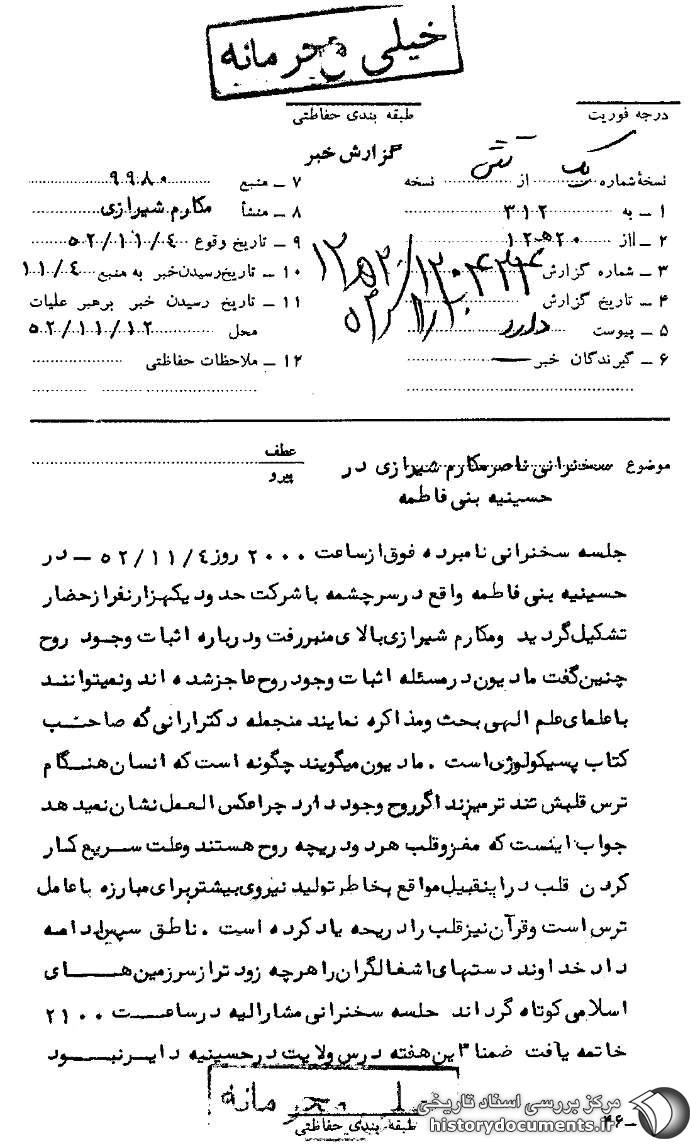 خیلی محرمانه
درجه فوریت
طبقه بندی حفاظتی
گزارش خبر
نسخهٔ شماره یک از شش نسخه
۱ ـ به ۳۱۲
۲ ـ از ۲۰ ه ۱۲
۳ ـ شماره گزارش
۴ ـ تاریخ گزارش
۵ ـ پیوست دارد
۶ ـ گیرندگان خبر ـ
۷ ـ منبع ۹۹۸۰
۸ ـ منشأ مکارم شیرازی
۹ ـ تاریخ وقوع ۵۲/۱۱/۴
۱۰ ـ تاریخ رسیدن خبر به منبع ۱۱/۴
۱۱ ـ تاریخ رسیدن خبر برهبر عملیات
محل ۵۲/۱۱/۱۲
۱۲ ـ ملاحظات حفاظتی
موضوع سخنرانی ناصر مکارم شیرازی در
حسینیه بنی فاطمه
عطف
پیرو
جلسه سخنرانی نامبرده فوق از ساعت ۲۰۰۰ روز ۵۲/۱۱/۴ ـ در
حسینیه بنی فاطمه واقع در سرچشمه با شرکت حدود یکهزار نفر از حضار
تشکیل گردید و مکارم شیرازی بالای منبر رفت و درباره اثبات وجود روح
چنین گفت مادیون در مسئله اثبات وجود روح عاجز شده اند و نمیتوانند
با علمای علم الهی بحث و مذاکره نمایند منجمله دکتر ارانی که صاحب
کتاب پسیکولوژی است . مادیون میگویند چگونه است که انسان هنگام
ترس قلبش تند تر میزند اگر روح وجود دارد چرا عکس العمل نشان نمیدهد
جواب اینست که مغز و قلب هر دو دریچه روح هستند و علت سریع کار
کردن قلب در اینقبیل مواقع بخاطر تولید نیروی بیشتر برای مبارزه با عامل
ترس است و قرآن نیز قلب را دریچه یاد کرده است . ناطق سپس ادامه
داد خداوند دستهای اشغالگران را هرچه زودتر از سرزمین های
اسلامی کوتاه گرداند جلسه سخنرانی مشارالیه در ساعت ۲۱۰۰
خاتمه یافت ضمنا این هفته درس ولایت در حسینیه دایر نبود
محرمانه
طبقه بندی حفاظتی
مرکز بررسی اسناد تاریخی
historydocuments.ir